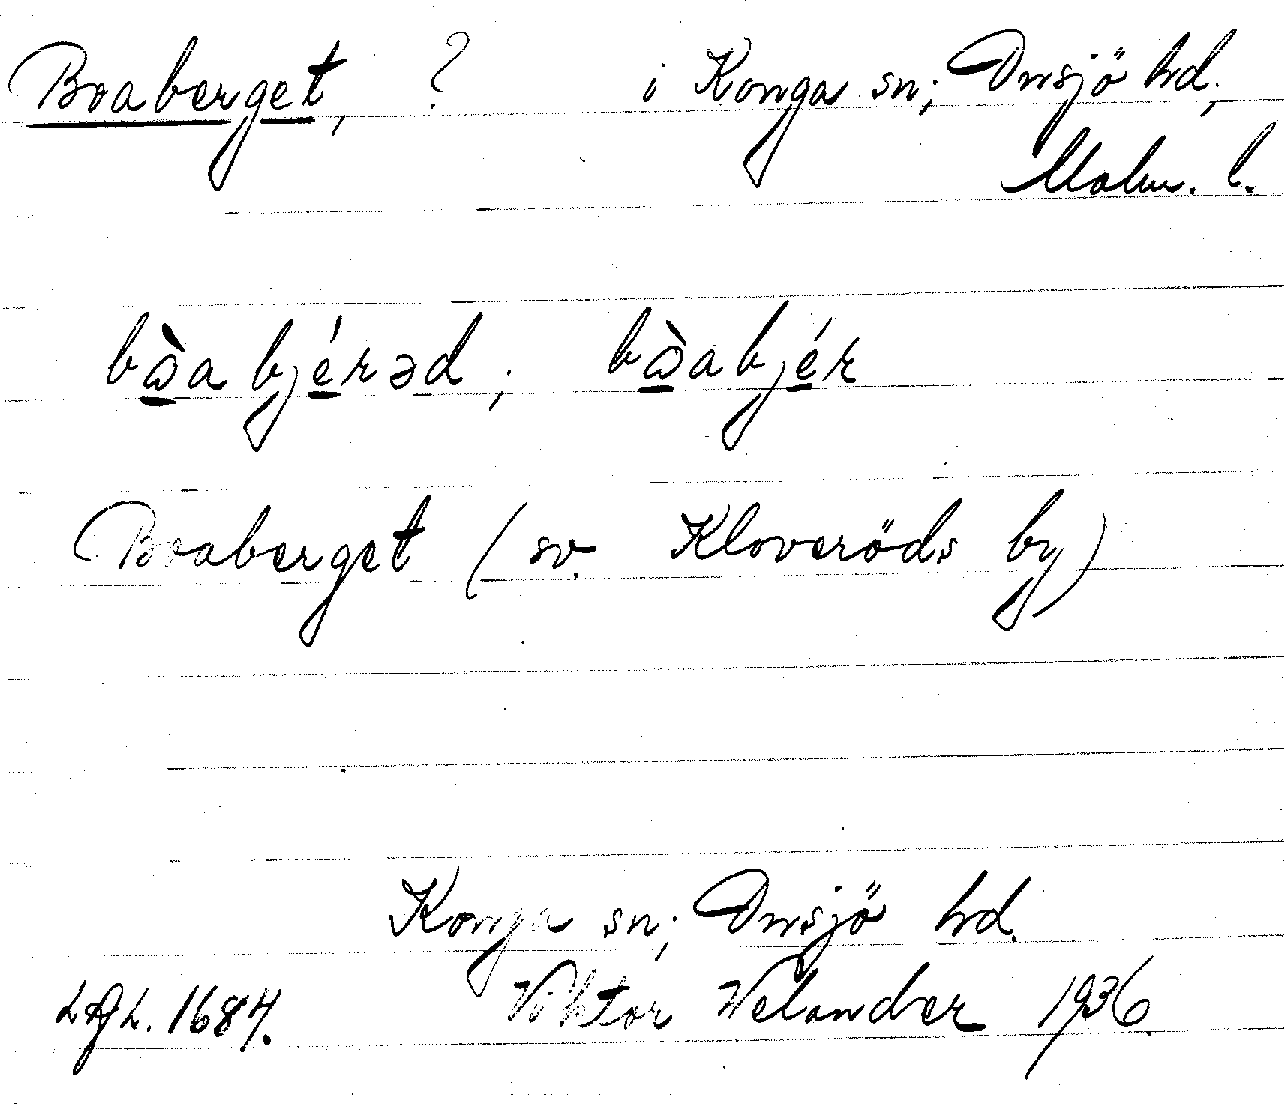 Boaberget, ? i Konga sn; Onsjö hd,
Malm. l.
bὼ̲a bjé̲rəd; bὼ̲a bjé̲r
Boaberget (sv. Kloveröds by)
Konga sn; Onsjö hd.
LAL. 1684. Viktor Welander 1936